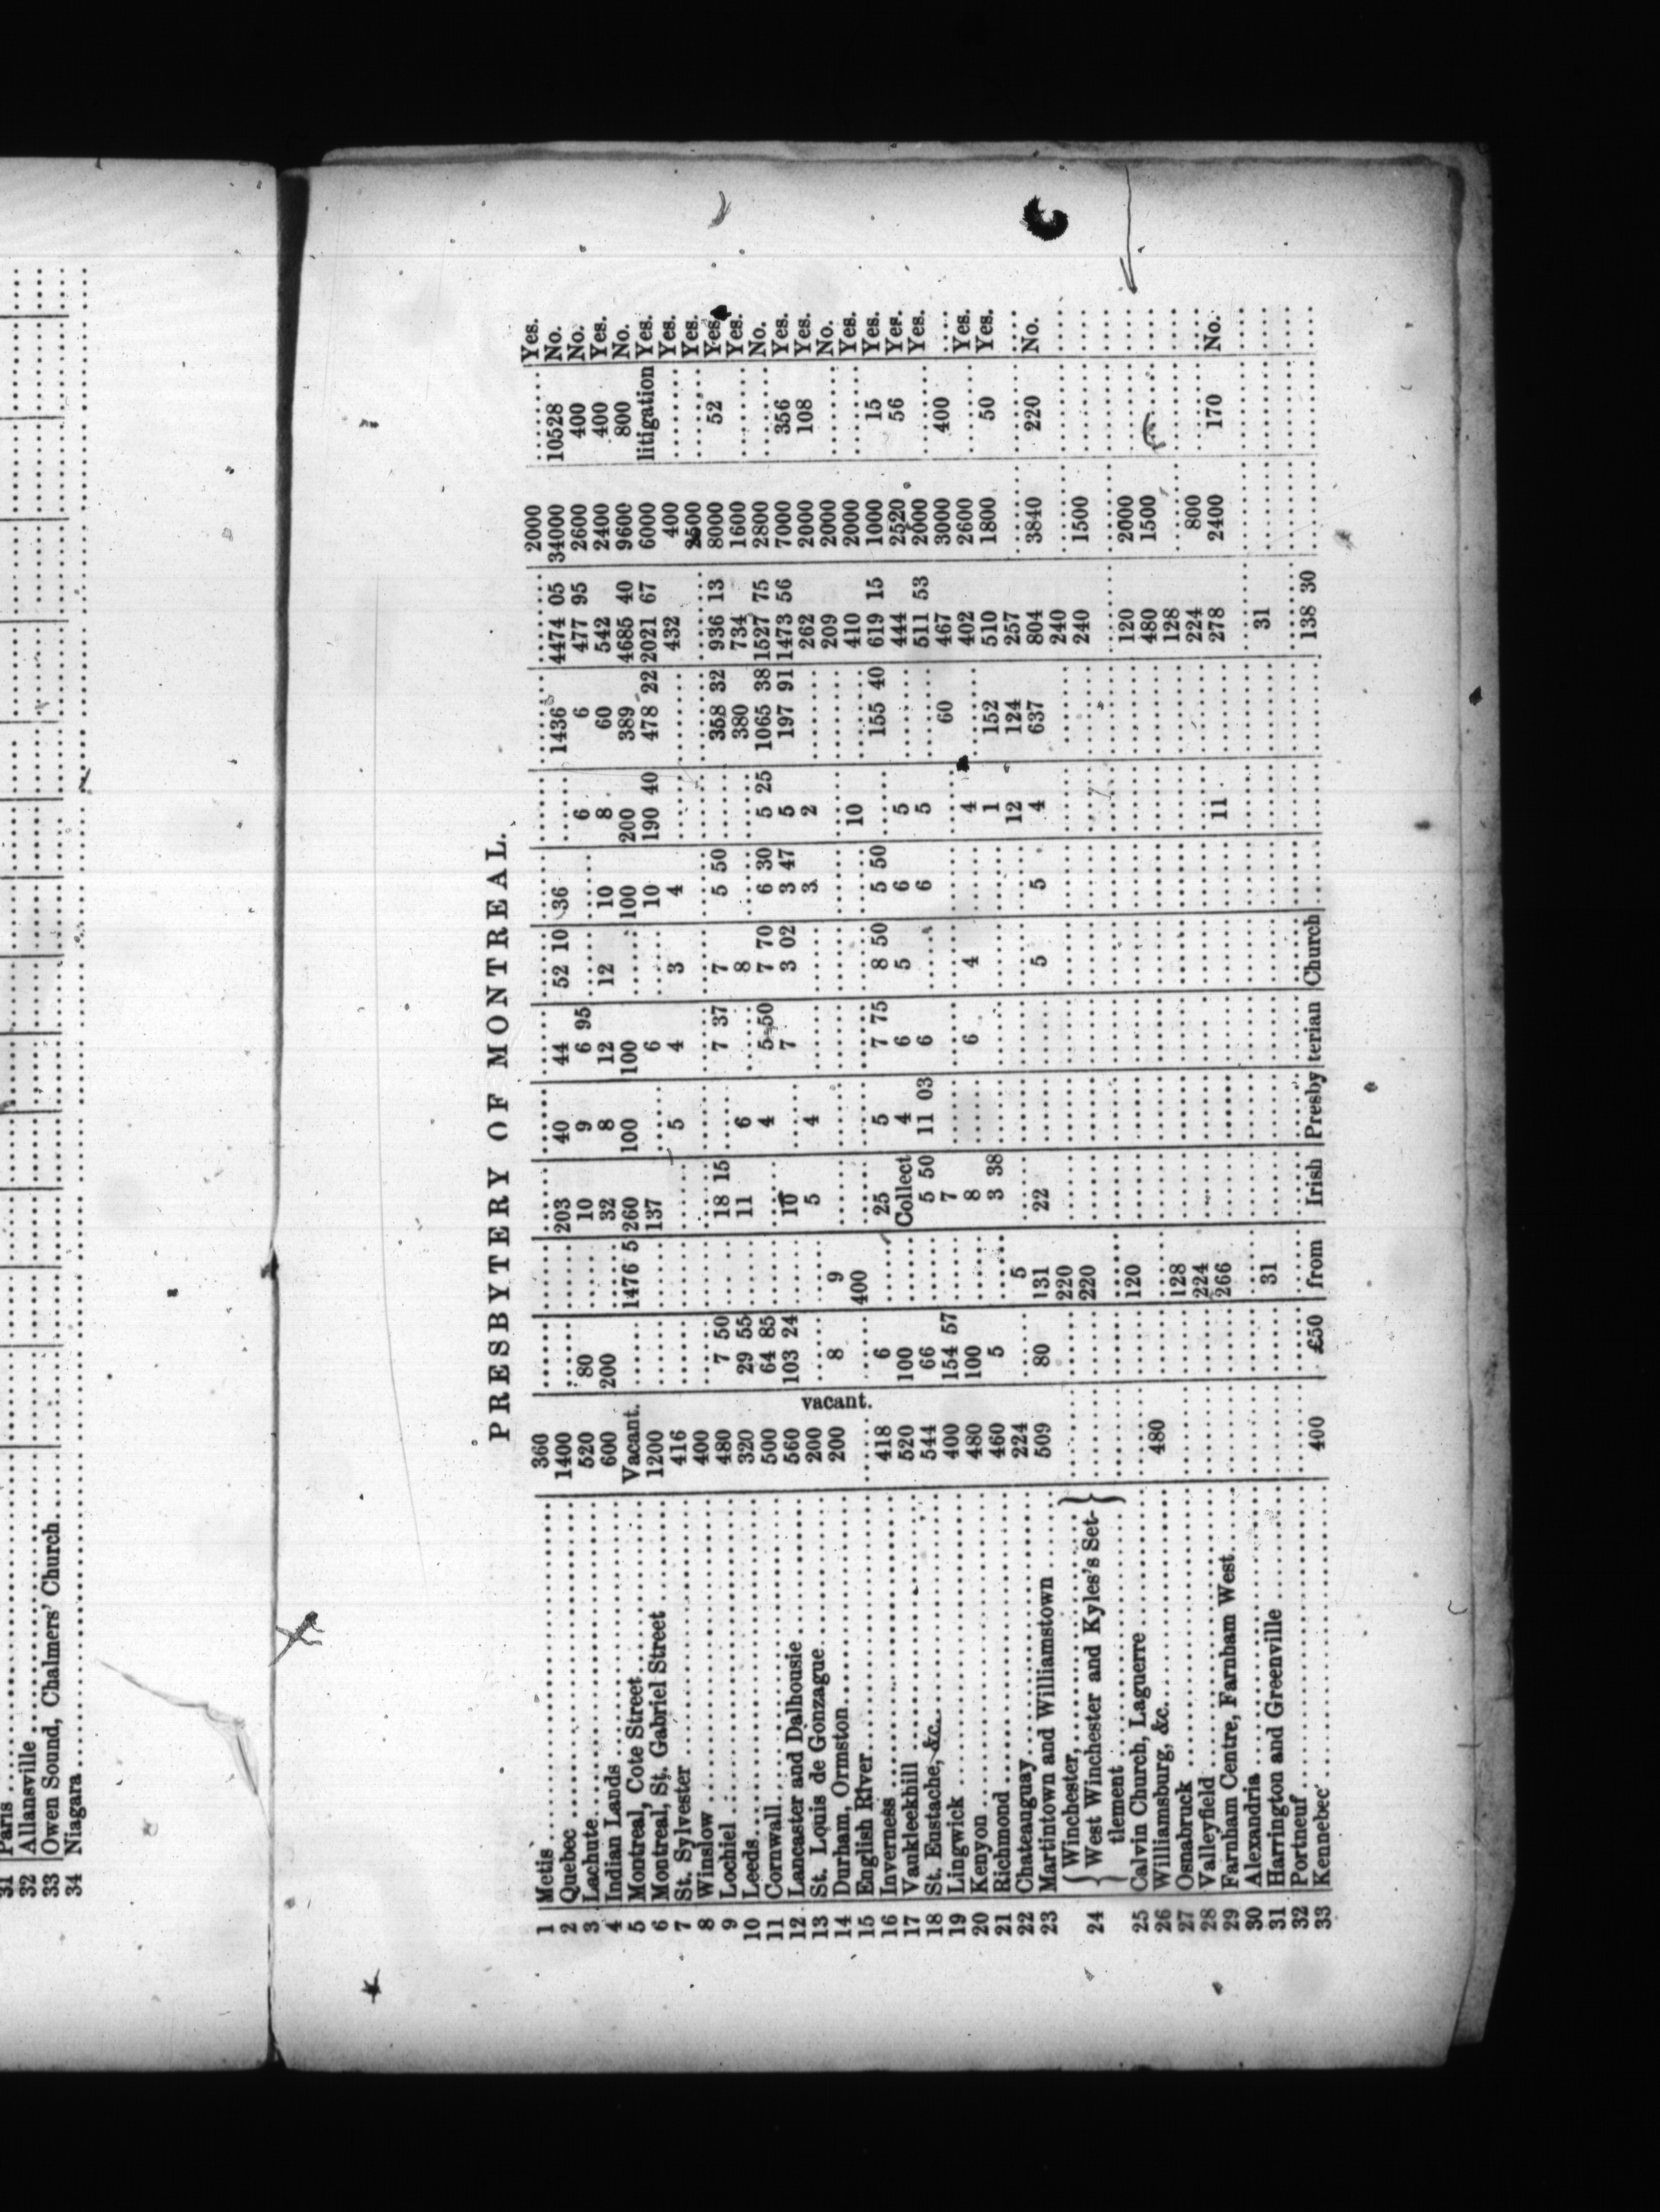 31 Paris
32 Allansville
33 Owen Sound, Chalmers' Church
34 Niagara
PRESBYTERY OF MONTREAL.
1 Metis 360 2000 Yes.
2 Quebec 1400 203 40 44 52 10 36 1436 4474 05 34000 10528 No.
3 Lachute 520 80 10 9 6 95 6 6 477 95 2600 400 No.
4 Indian Lands 600 200 32 8 12 12 10 8 60 542 2400 400 Yes.
5 Montreal, Cote Street Vacant. 1476 5 260 100 100 100 200 389 4685 40 9600 800 No.
6 Montreal, St. Gabriel Street 1200 137 6 10 190 40 478 22 2021 67 6000 litigation Yes.
7 St. Sylvester 416 5 4 3 4 432 400 Yes.
8 Winslow 400 2500 Yes.
9 Lochiel 480 7 50 18 15 7 37 7 5 50 358 32 936 13 8000 52 Yes
10 Leeds 320 29 55 11 6 8 380 734 1600 Yes.
11 Cornwall 500 64 85 4 5 50 7 70 6 30 5 25 1065 38 1527 75 2800 No.
12 Lancaster and Dalhousie 560 103 24 10 7 3 02 3 47 5 197 91 1473 56 7000 356 Yes.
13 St. Louis de Gonzague 200 5 4 3 2 262 2000 108 Yes.
14 Durham, Ormston 200 8 9 209 2000 No.
15 English River vacant. 400 10 410 2000 Yes.
16 Inverness 418 6 25 5 7 75 8 50 5 50 155 40 619 15 1000 15 Yes.
17 Vankleekhill 520 100 Collect 4 6 5 6 5 444 2520 56 Yes.
18 St. Eustache, &c. 544 66 5 50 11 03 6 6 5 511 53 2000 Yes.
19 Lingwick 400 154 57 7 60 467 3000 400
20 Kenyon 480 100 8 6 4 4 402 2600 Yes.
21 Richmond 460 5 3 38 1 152 510 1800 50 Yes.
22 Chateauguay 224 5 12 124 257
23 Martintown and Williamstown 509 80 131 22 5 5 4 637 804 3840 220 No.
Winchester, 220 240
24 West Winchester and Kyles's Set- 220 240 1500
tlement
25 Calvin Church, Laguerre 120 120 2000
26 Williamsburg, &c. 480 480 1500
27 Osnabruck 128 128
28 Valleyfield 224 224 800
29 Farnham Centre, Farnham West 266 11 278 2400 170 No.
30 Alexandria
31 Harrington and Greenville 31 31
32 Portneuf
33 Kennebec 400 £50 from Irish Presbyterian Church 138 30